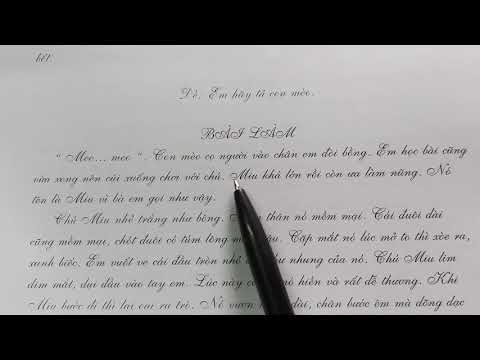 hết.
Đề. Em hãy tả con mèo.
BÀI LÀM
“ Meo... meo “. Con mèo cọ người vào chân em đòi bồng. Em học bài cũng
vừa xong nên cúi xuống chơi với chú. Miu khá lớn rồi còn ưa làm nũng. Nó
tên là Miu vì bà em gọi như vậy.
Chú Miu nhẻ trắng như bông. thân nó mềm mại. Cái đuôi dài
cũng mềm mại, chót đuôi có túm lông Cặp mắt nó lúc mở to thì xòe ra,
xanh biếc. Em vuốt ve cái đầu tròn nhỏ nhung của nó. Chú Miu lim
dim mắt, dụi đầu vào tay em. Lúc này nó hiền và rất dễ thương. Khi
Miu bước đi thì lại oai ra trò. Nó vươn dài, chân bước êm mà dõng dạc